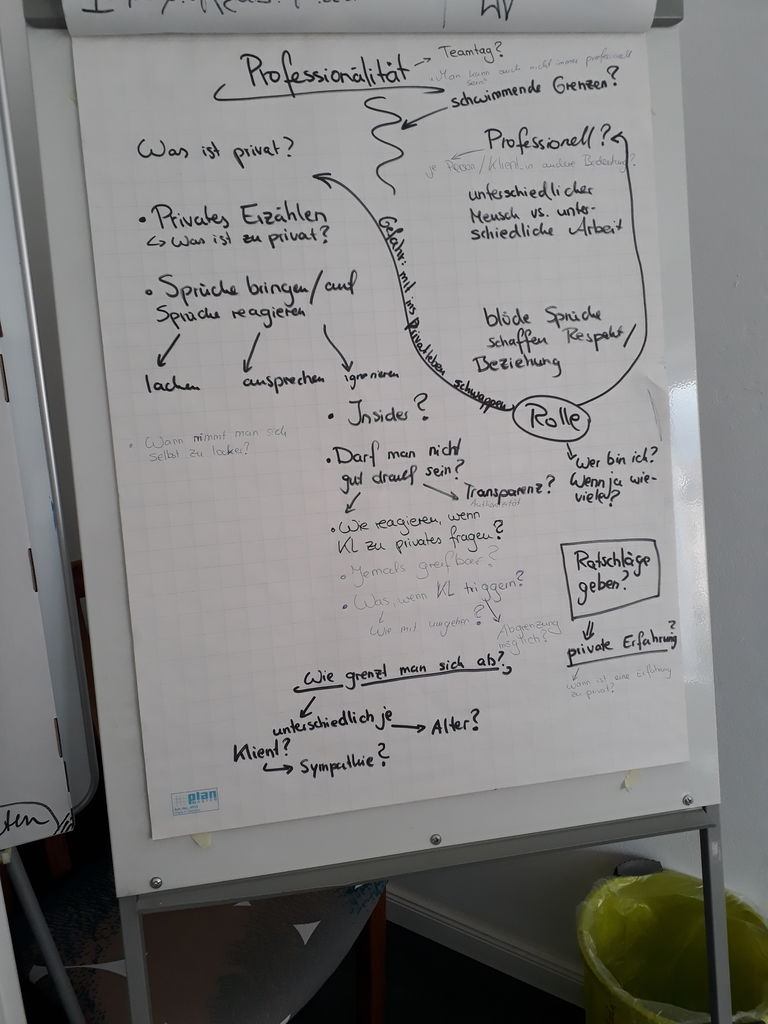 Professionalität
Teamtag?
"Man kann auch nicht immer professionell
sein"
schwimmende Grenzen?
Was ist privat?
Professionell?
je Person/Klient.in andere Bedeutung?
• Privates Erzählen
↳ Was ist zu privat?
unterschiedlicher
Mensch vs. unter-
schiedliche Arbeit
• Sprüche bringen/auf
Sprüche reagieren
lachen
ansprechen
ignorieren
Gefahr: mit ins Privatleben schwappen
blöde Sprüche
schaffen Respekt/
Beziehung
Rolle
Wer bin ich?
Wenn ja wie-
viele?
• Insider?
• Wann nimmt man sich
selbst zu locker?
• Darf man nicht
gut drauf sein?
Transparenz?
Authentizität
• Wie reagieren, wenn
KL zu privates fragen?
• Jemals greifbar?
• Was, wenn KL triggern?
Wie mit umgehen?
Abgrenzung
möglich?
Ratschläge
geben?
private Erfahrung?
wann ist eine Erfahrung
zu privat?
Wie grenzt man sich ab?
unterschiedlich je
Klient?
Alter?
Sympathie?
plan
ten